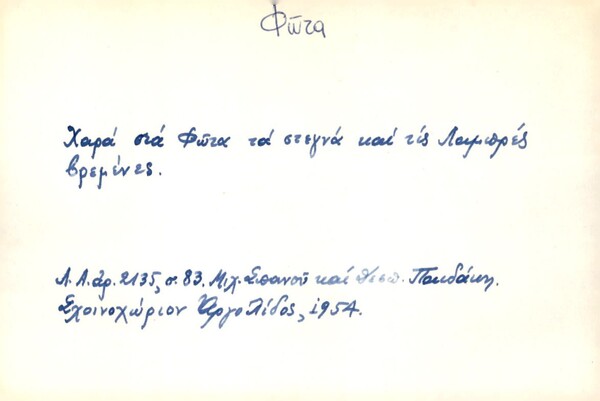 Φῶτα
Χαρά στά Φῶτα τά στεγνά καί τίς Λαμπρές
βρεμένες.
Λ.Α. ἀρ. 2135, σ. 83. Μιχ. Σπανοῦ καί Θεσπ.
Σχοινοχώριον Ἀργολίδος, 1954.